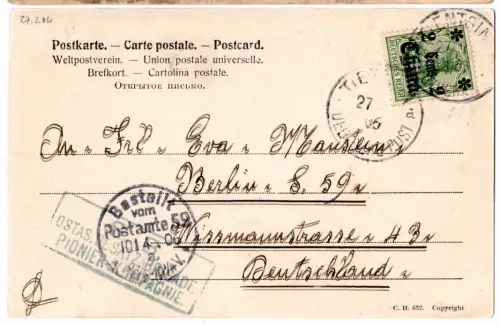 27.2.06
Postkarte. — Carte postale. — Postcard.
Weltpostverein. — Union postale universelle.
Brefkort. — Cartolina postale.
Открытое письмо.
China
27
06
An Frl Eva Manstein
Berlin S. 59
Wissmannstrasse 43
Deutschland
Bestellt
vom
Postamte 59
10|4 06
OSTAS.
PIONIER-KOMPAGNIE.
C. H. 652. Copyright